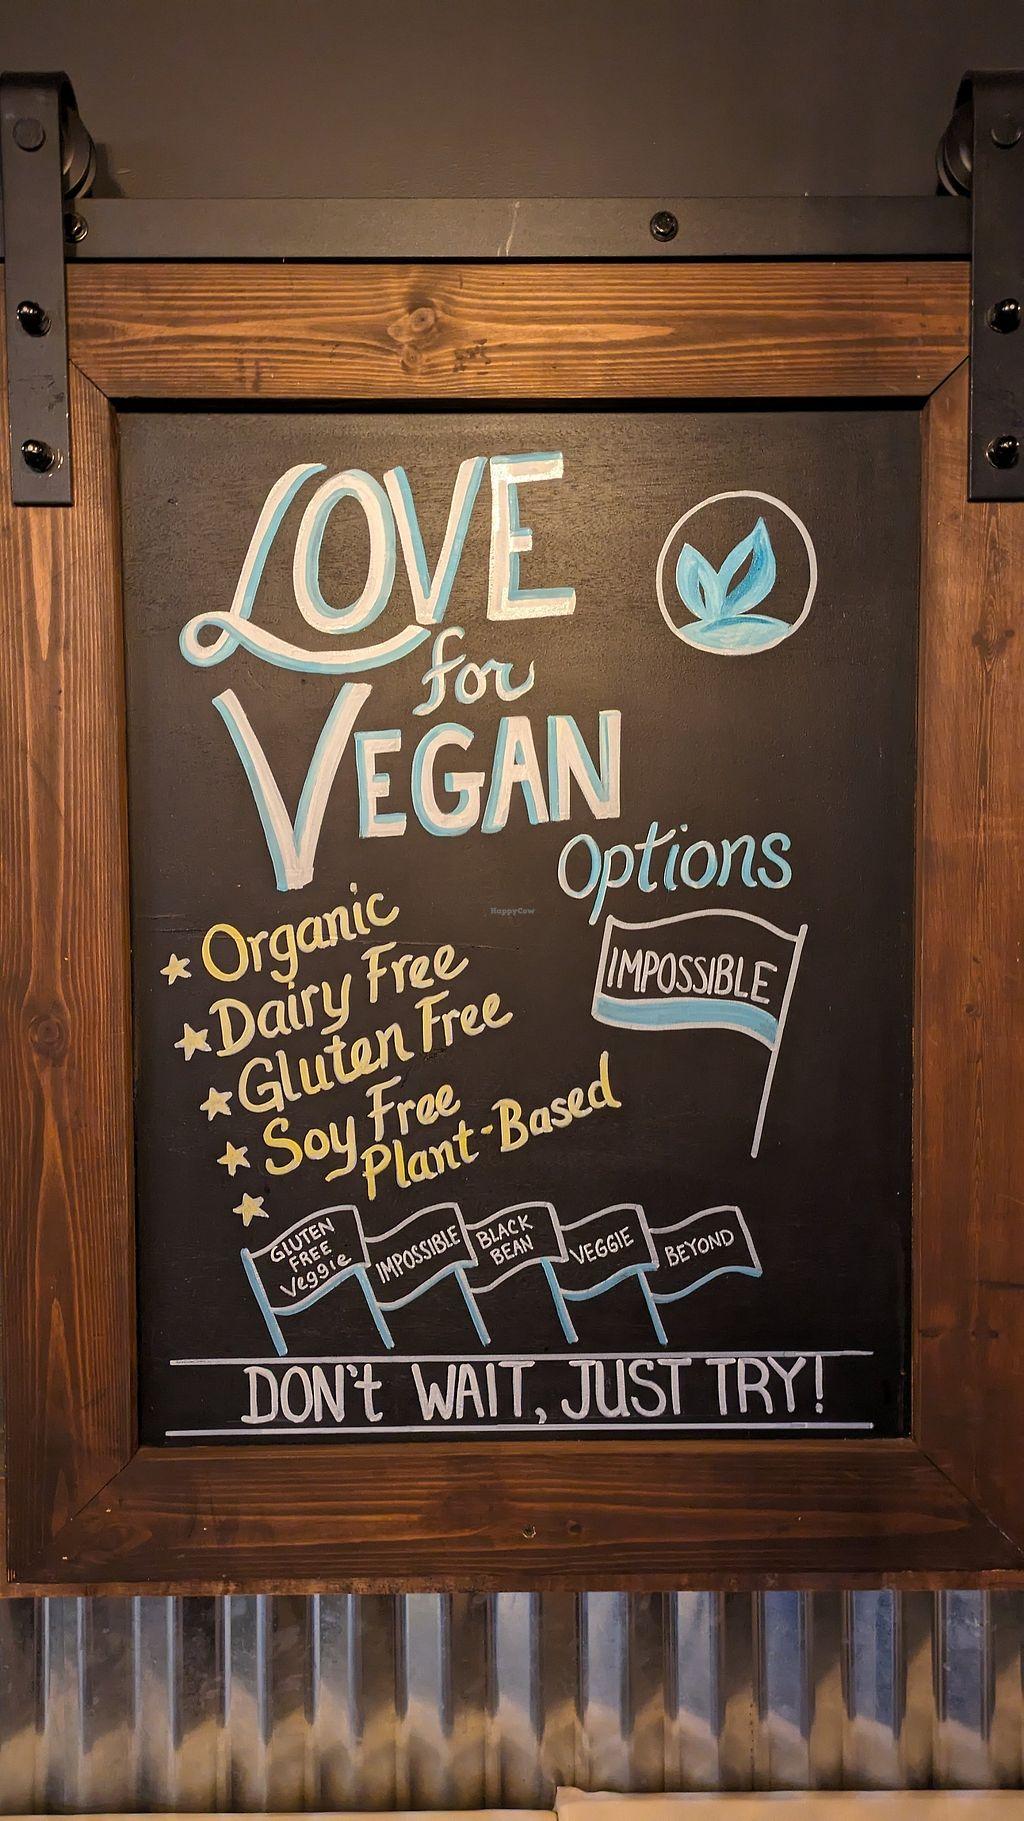 LOVE
for
VEGAN
Options
Organic
Dairy Free
Gluten Free
Soy Free
Plant-Based
IMPOSSIBLE
GLUTEN
FREE
Veggie
IMPOSSIBLE
BLACK
BEAN
VEGGIE
BEYOND
DON't WAIT, JUST TRY!
HappyCow